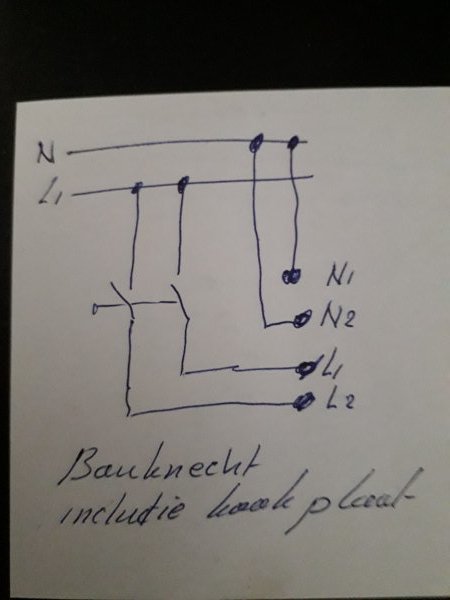 N
L1
N1
N2
L1
L2
Bauknecht
inductie kookplaat